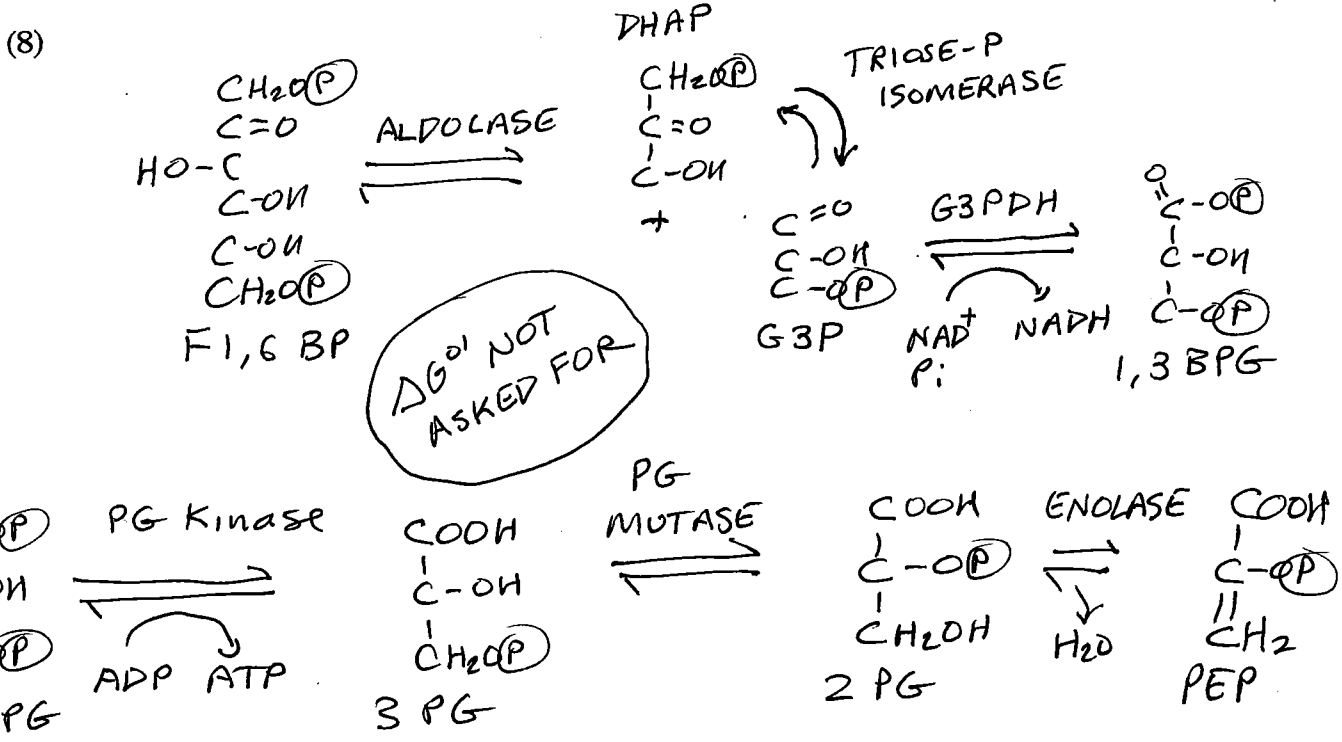 (8)
DHAP
CH₂OⓅ
C=O
HO-C
C-OH
C-OH
CH₂OⓅ
F1,6 BP
ALDOLASE
CH₂OⓅ
C=O
C-OH
+
TRIOSE-P
ISOMERASE
C=O
C-OH
C-OⓅ
G3P
G3PDH
NAD⁺ NADH
Pi
O
C-OⓅ
C-OH
C-OⓅ
1,3 BPG
ΔG°' NOT
ASKED FOR
Ⓟ
OH
Ⓟ
PG
PG Kinase
ADP ATP
COOH
C-OH
CH₂OⓅ
3 PG
PG
MUTASE
COOH
C-OⓅ
CH₂OH
2 PG
ENOLASE
H₂O
COOH
C-OⓅ
CH₂
PEP